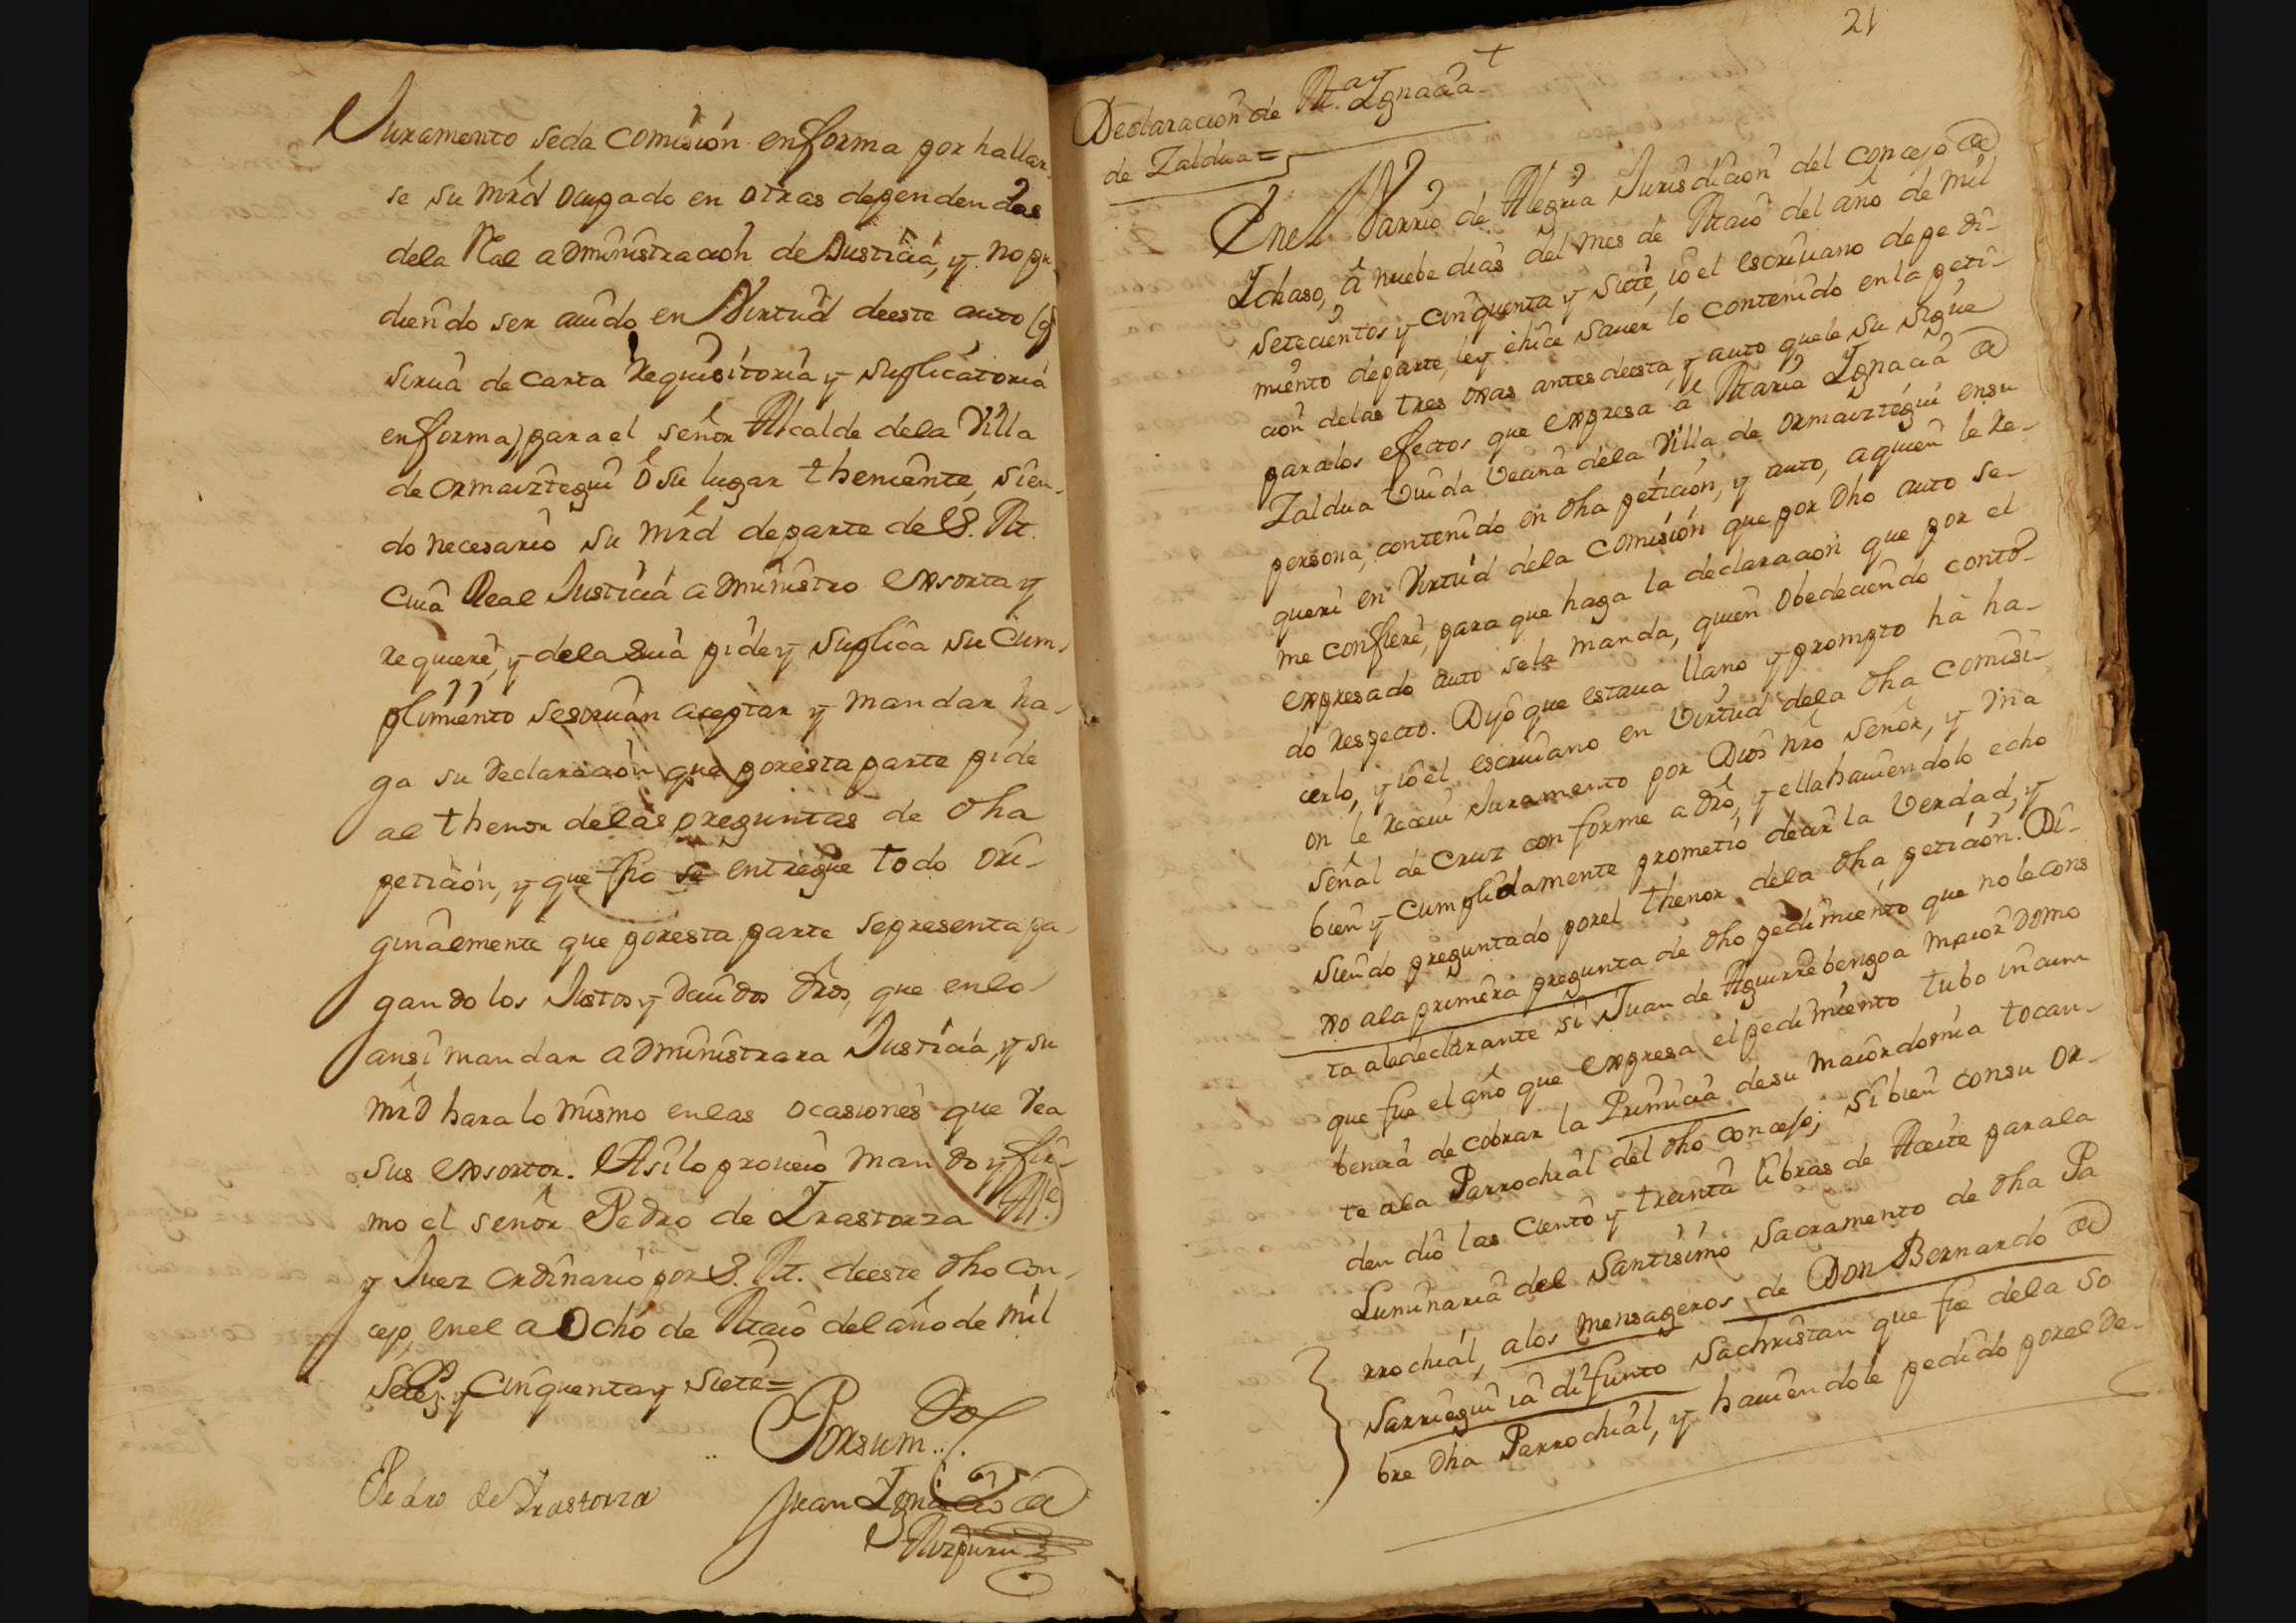 Juramento seda comisión enforma por hallar
se su mrd ocupado en otras dependencias
dela Rae administración de Justicia, y no pu
diendo ser auido en Virtud deeste auto (q
sirua de carta requisitoria y suplicatoria
enforma) para el señor Alcalde dela Villa
de ormaiztegui o su lugar theniente, sien-
do necesario su mrd departe de S. M.
cuia Real Justicia administro exsorta y
requiere, y dela suia pide y suplica su cum-
plimiento sesiruan aceptar y mandar ha-
ga su declaración que poresta parte pide
al thenor delas preguntas de dha
petición, y que fho se entregue todo ori-
ginalmente que poresta parte sepresenta pa-
gando los Justos y deuidos dros, que enlo
ansi mandar administrara Justicia, y su
mrd hara lo mismo enlas ocasiones que vea
sus exsortos. Asilo proueio mando y fir-
mo el señor Pedro de Irastorza Alc.
y Juez ordinario por S. M. deeste dho con-
cejo, enel a Ocho de Maio del año de mil
setez. y Cinquenta y siete=
Pedro de Irastorza
Porsum.do
Juan Ignacio de
Aizpuru
21
Declaracion de M.a Ignacia
de Zaldua=
Enel Varrio de Alegria Jurisdicion del concejo de
Ichaso, â nuebe dias del mes de Maio del año de mil
setecientos y cinquenta y siete, io el escriuano de pedi-
miento departe, ley ehice sauer lo contenido enla peti-
ción delas tres oxas antes deesta, y auto quele su sigue
paralos efectos que expresa â Maria Ignacia de
Zaldua Viuda vecina dela Villa de ormaiztegui ensu
persona, contenido en dha petición, y auto, aquien le re-
queri en Virtud dela comisión que por dho auto se-
me confiere, para que haga la declaracion que por el
expresado auto sela manda, quien obedeciendo conto-
do respecto. Dijo que estaua llano y prompto ha ha-
cerlo, y io el escriuano en Virtud dela dha comisi-
on le receui Juramento por Dios nro señor, y vna
señal de Cruz con forme a dro, y ella hauiendolo echo
bien y cumplidamente prometio decir la Verdad, y
siendo preguntado porel thenor dela dha petición. Di-
xo ala primera pregunta de dho pedimiento que nole cons
ta aladeclarante si Juan de Aguirrebengoa maiordomo
que fue el año que expresa el pedimiento tubo incum
bencia de cobrar la Primicia desu maiordomia tocan-
te ala Parrochial del dho concejo; si bien consu or-
den dio las ciento y treinta libras de Aceite parala
Luminaria del Santisimo Sacramento de dha Pa
rrochial, alos mensageros de Don Bernardo de
Sarriegui ia difunto Sachristan que fue dela so
bre dha Parrochial, y hauiendole pedido porel de-